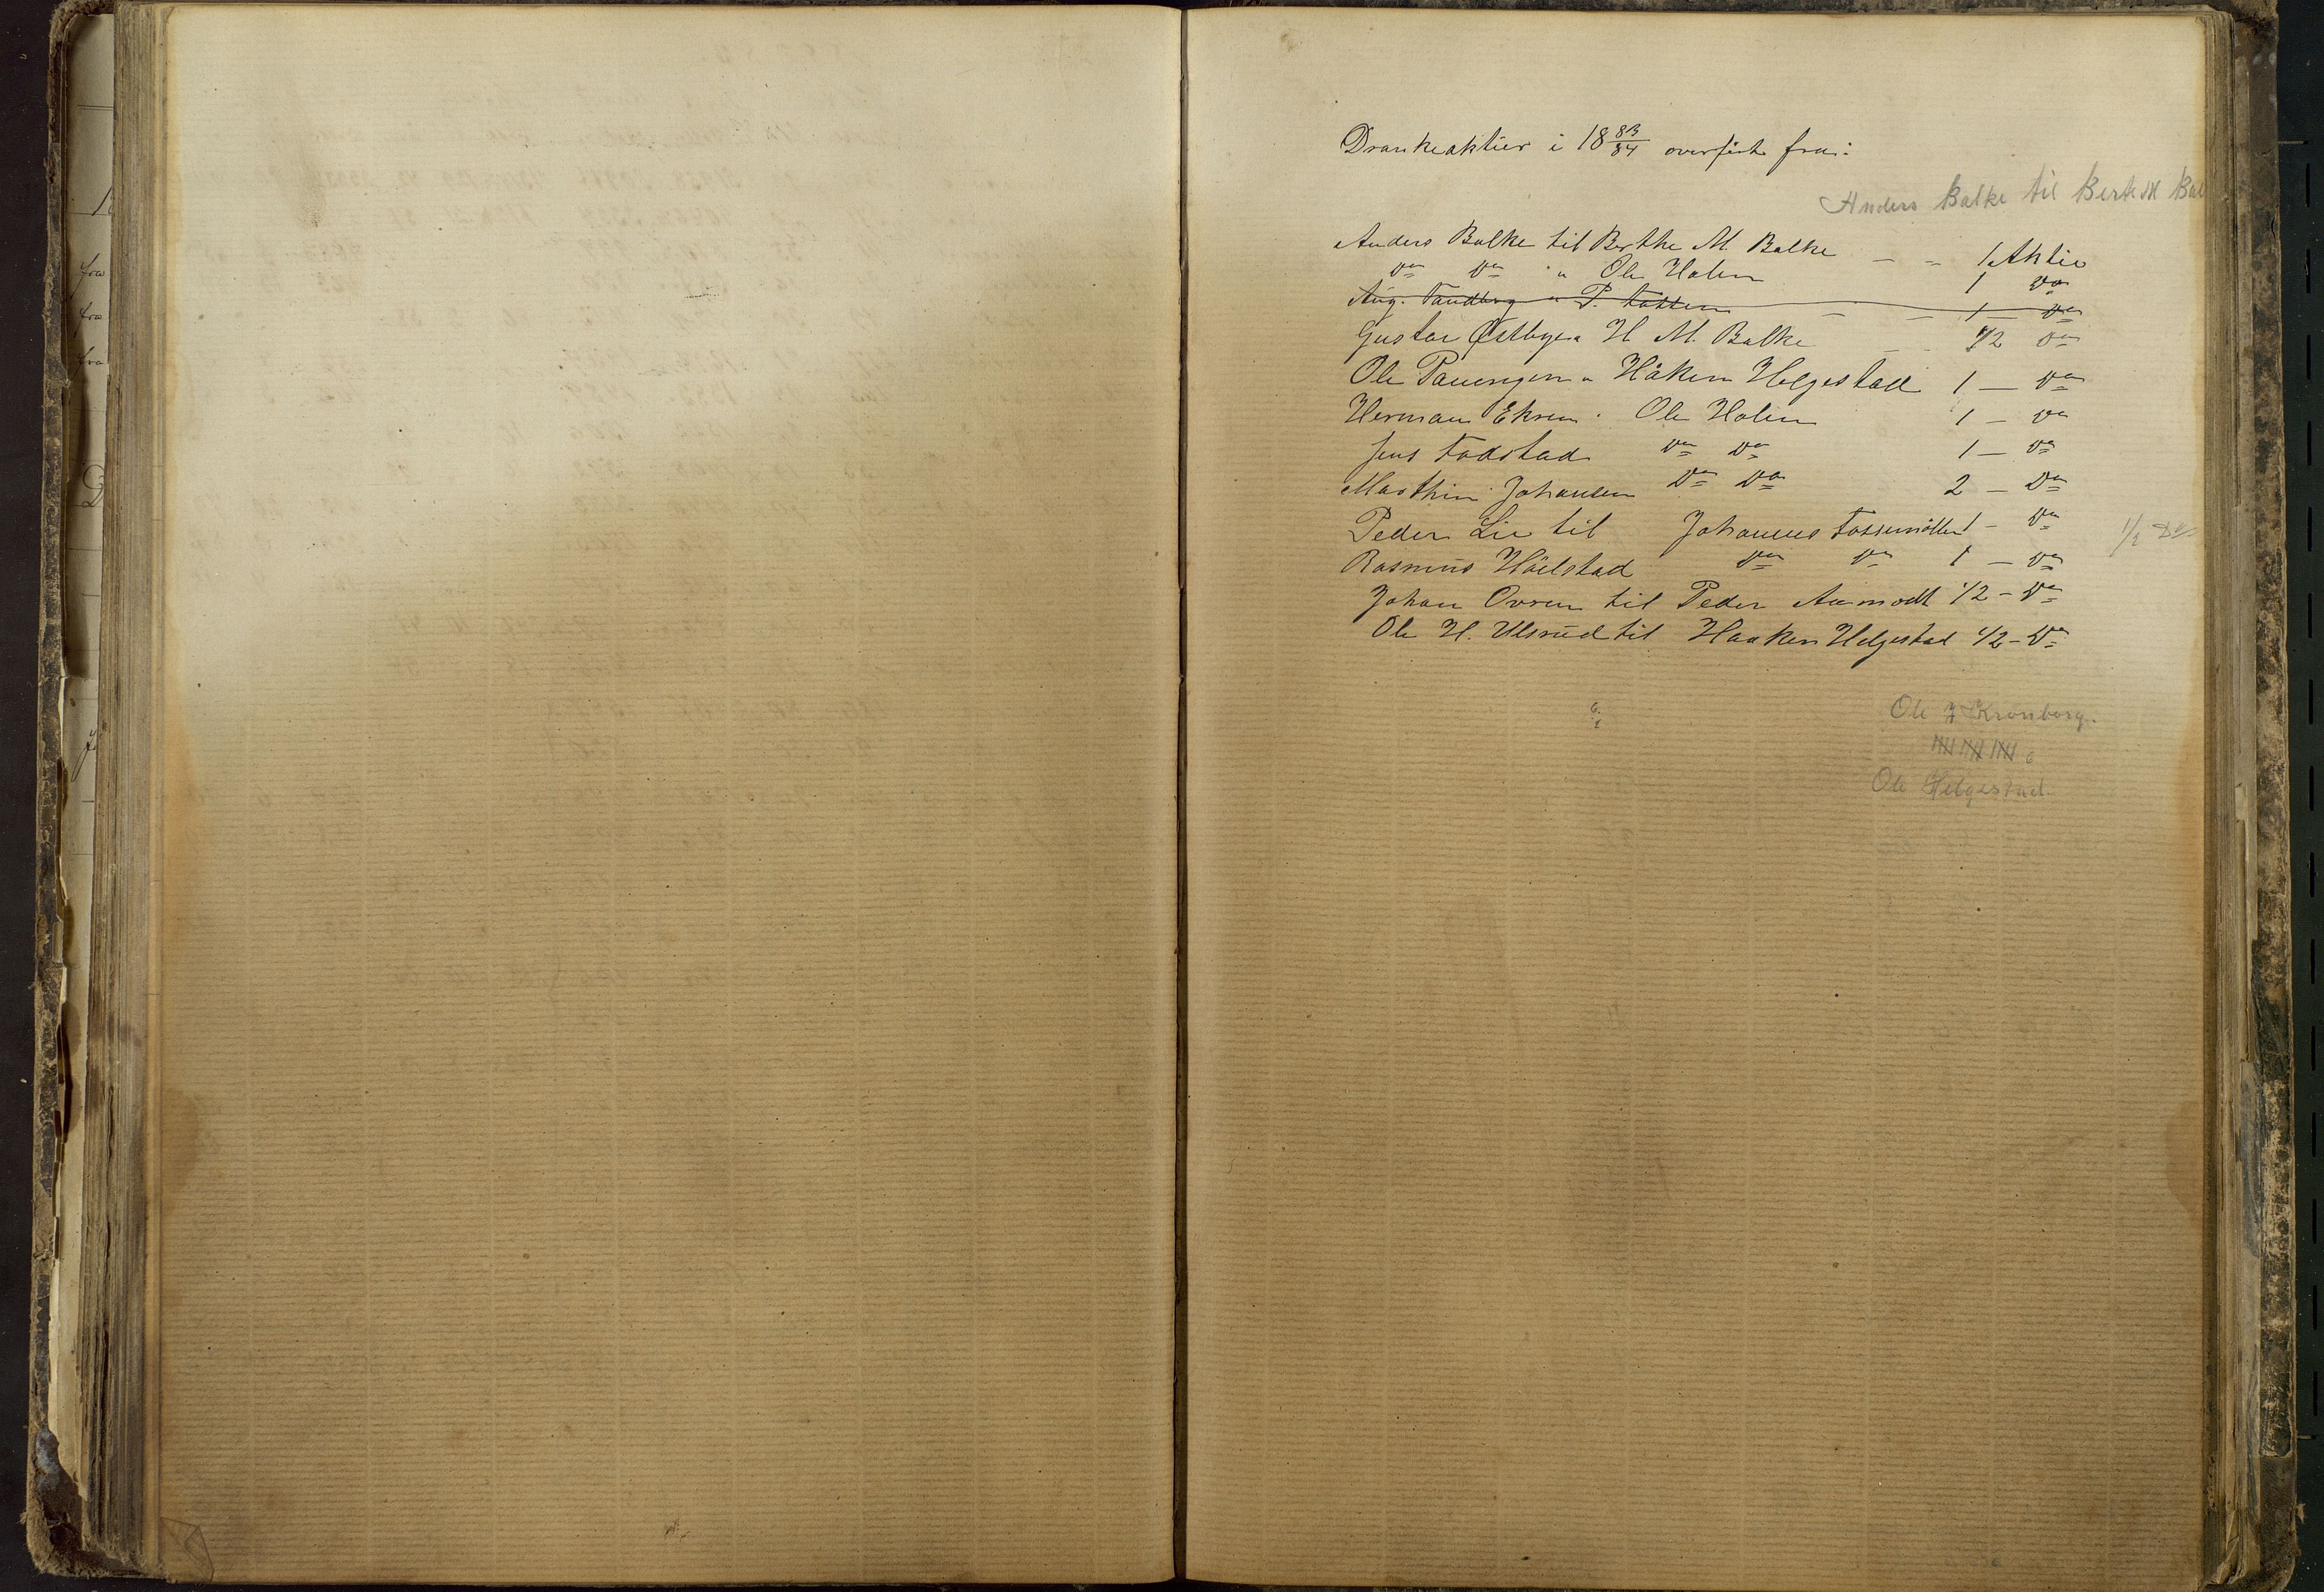 Drankeaktier i 18 83/84 overført fra:
Anders Balke til Berthe M Bal
Anders Balke til Berthe M. Balke - - 1 Aktie
Do Do " Ole Holen 1 Do
Aug. Sandberg " P. Totten - - 1 - Do
Gustav Østbye " H M. Balke - - 1/2 Do
Ole Paulengen " Håken Helgestad 1 - Do
Herman Ekren " Ole Holen 1 - Do
Jens Fodstad Do Do 1 - Do
Marthin Johansen Do Do 2 - Do
Peder Lie til Johannes Fossemöllen 1 - Do 1/2 Do
Rasmus Höilstad Do Do 1 - Do
Johan Ovren til Peder Aamodt 1/2 - Do
Ole H. Ulsrud til Haaken Helgestad 1/2 - Do
Ole J Kronborg.
Ole Helgestad.